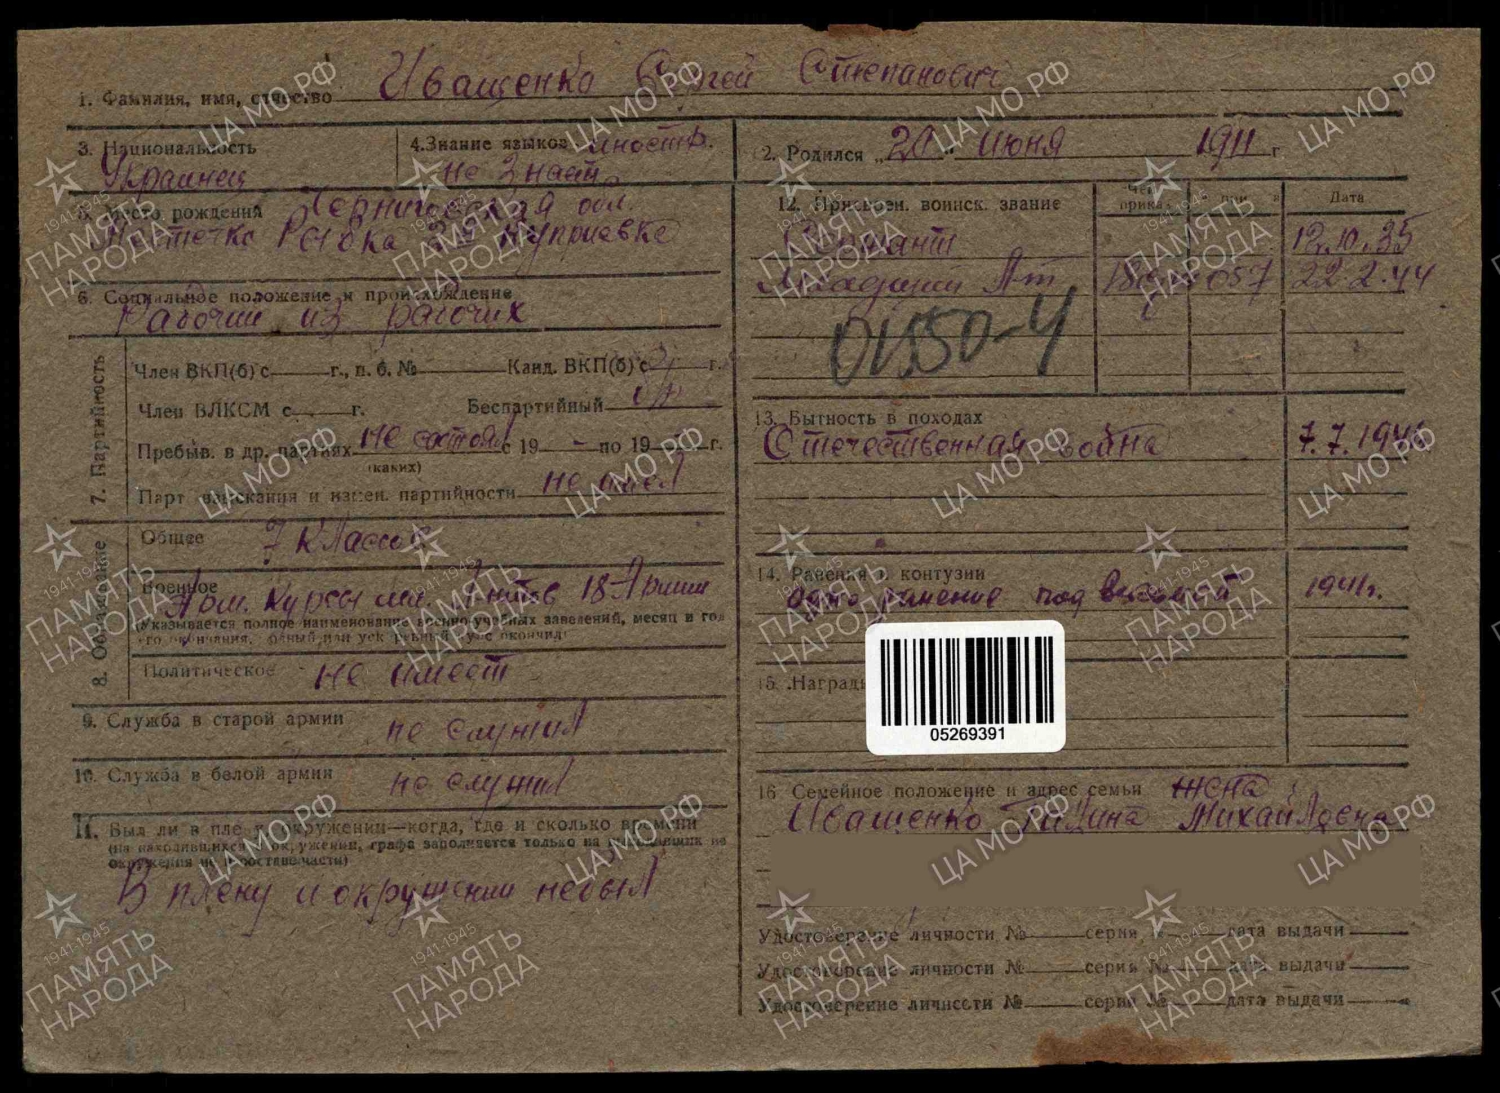 1. Фамилия, имя, отчество Иващенко Сергей Степанович
3. Национальность Украинец
4. Знание языков иностр. не знает
2. Родился „20" июня 1911 г.
5. Место рождения Черниговская обл.
Куприевка
6. Социальное положение и происхождение
Рабочий из рабочих
7. Партийность
Член ВКП(б) с г., п. б. № Канд. ВКП(б) с г.
Член ВЛКСМ с г. Беспартийный
Пребыв. в др. партиях не состоял с 19 - по 19 г.
(каких)
Парт взыскания и измен. партийности не имел
8. Образование
Общее 7 классов
Военное Арм. Курсы мл. 18 Армии
(Указывается полное наименование военно-учебных заведений, месяц и год
Политическое не имеет
9. Служба в старой армии не служил
10. Служба в белой армии не служил
11. Был ли в плену и окружении—когда, где и сколько времени
(на находившихся в окружении, графа заполняется только на вышедших из
окружения не в составе части)
В плену и окружении не был
12. Присвоен. воинск. звание
Чьим приказ
Дата
Сержант 12.10.35
Младший Лт 057 22.2.44
01550-4
13. Бытность в походах
Отечественная война 7.7.194
14. Ранения и контузии
одно ранение под 1941г.
15. Награды
05269391
16 Семейное положение и адрес семьи жена
Иващенко Галина Михайловна
Удостоверение личности № серия № дата выдачи
Удостоверение личности № серия № дата выдачи
Удостоверение личности № серия № дата выдачи
ЦА МО.РФ
1941-1945
ПАМЯТЬ
НАРОДА